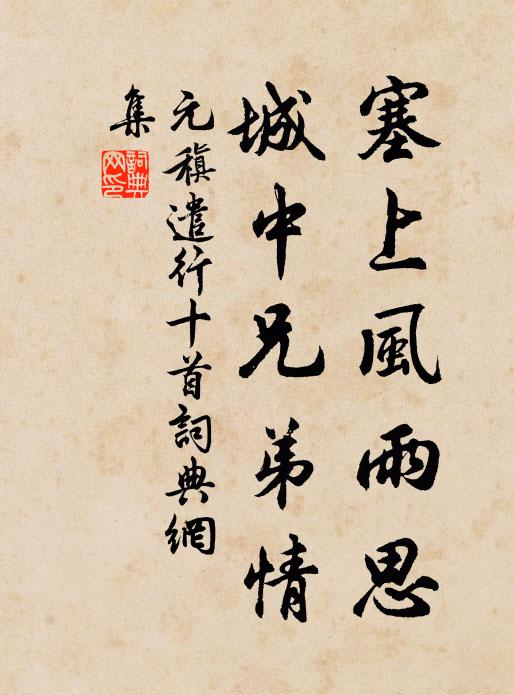 塞上風雨思
城中兄弟情
元稹遣行十首詞典網
集
詞典
网印